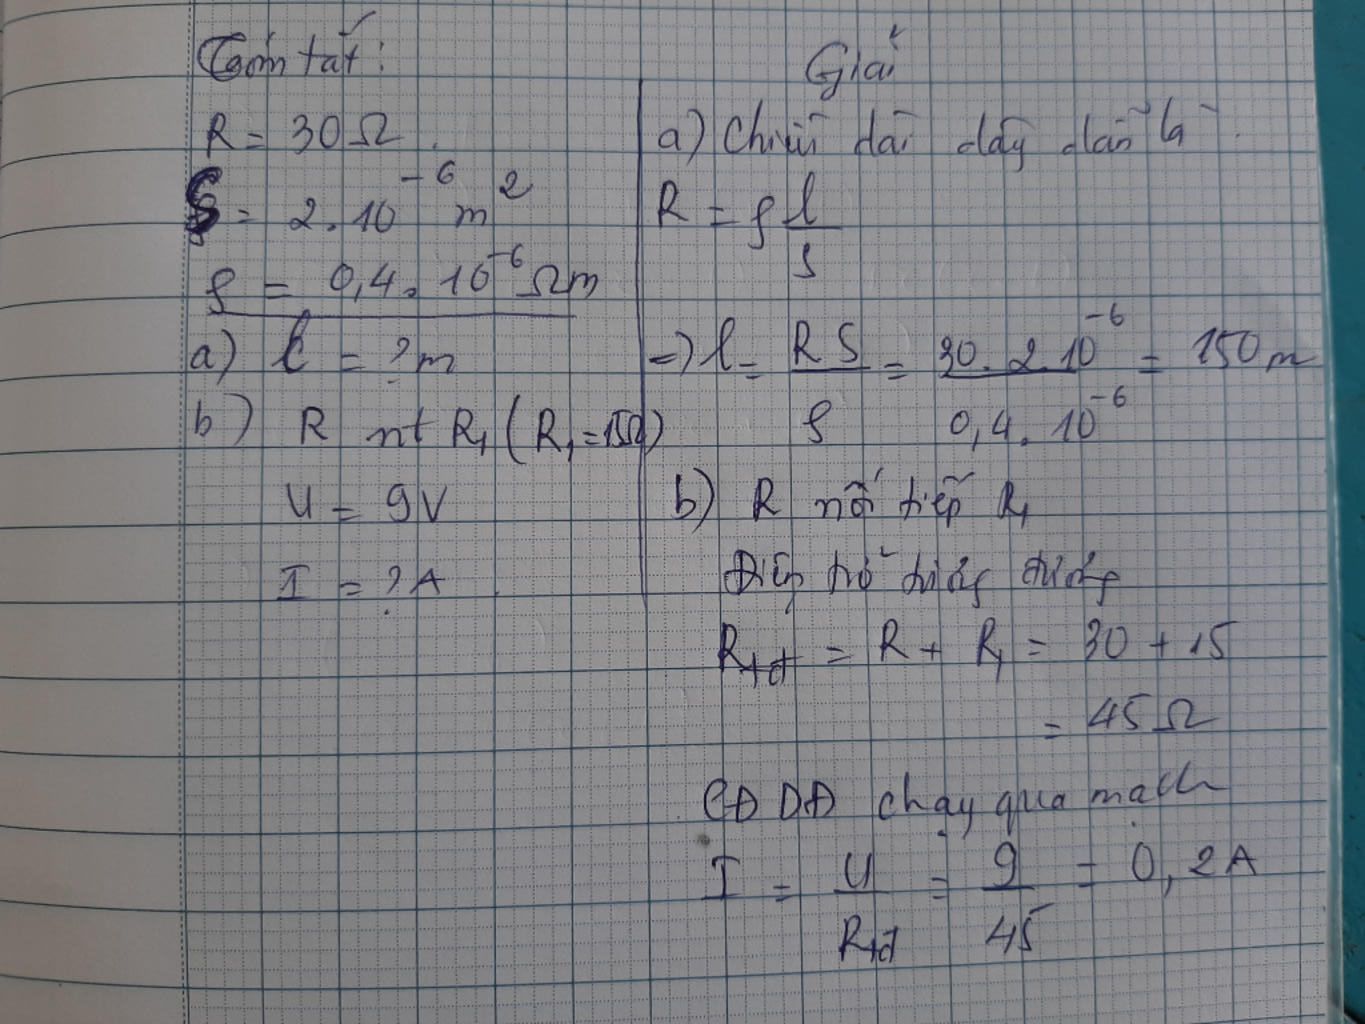 Tóm tắt:
R = 30Ω.
S = 2.10^-6 m^2
ρ = 0,4.10^-6 Ωm
a) l = ? m
b) R nt R₁ (R₁=15Ω)
U = 9V
I = ? A
Giải
a) Chiều dài dây dẫn là
R = ρ l/S
=> l = RS/ρ = 30.2.10^-6/0,4.10^-6 = 150m
b) R nối tiếp R₁
Điện trở tương đương
Rtđ = R + R₁ = 30 + 15
= 45Ω
CĐDĐ chạy qua mạch
I = U/Rtđ = 9/45 = 0,2A